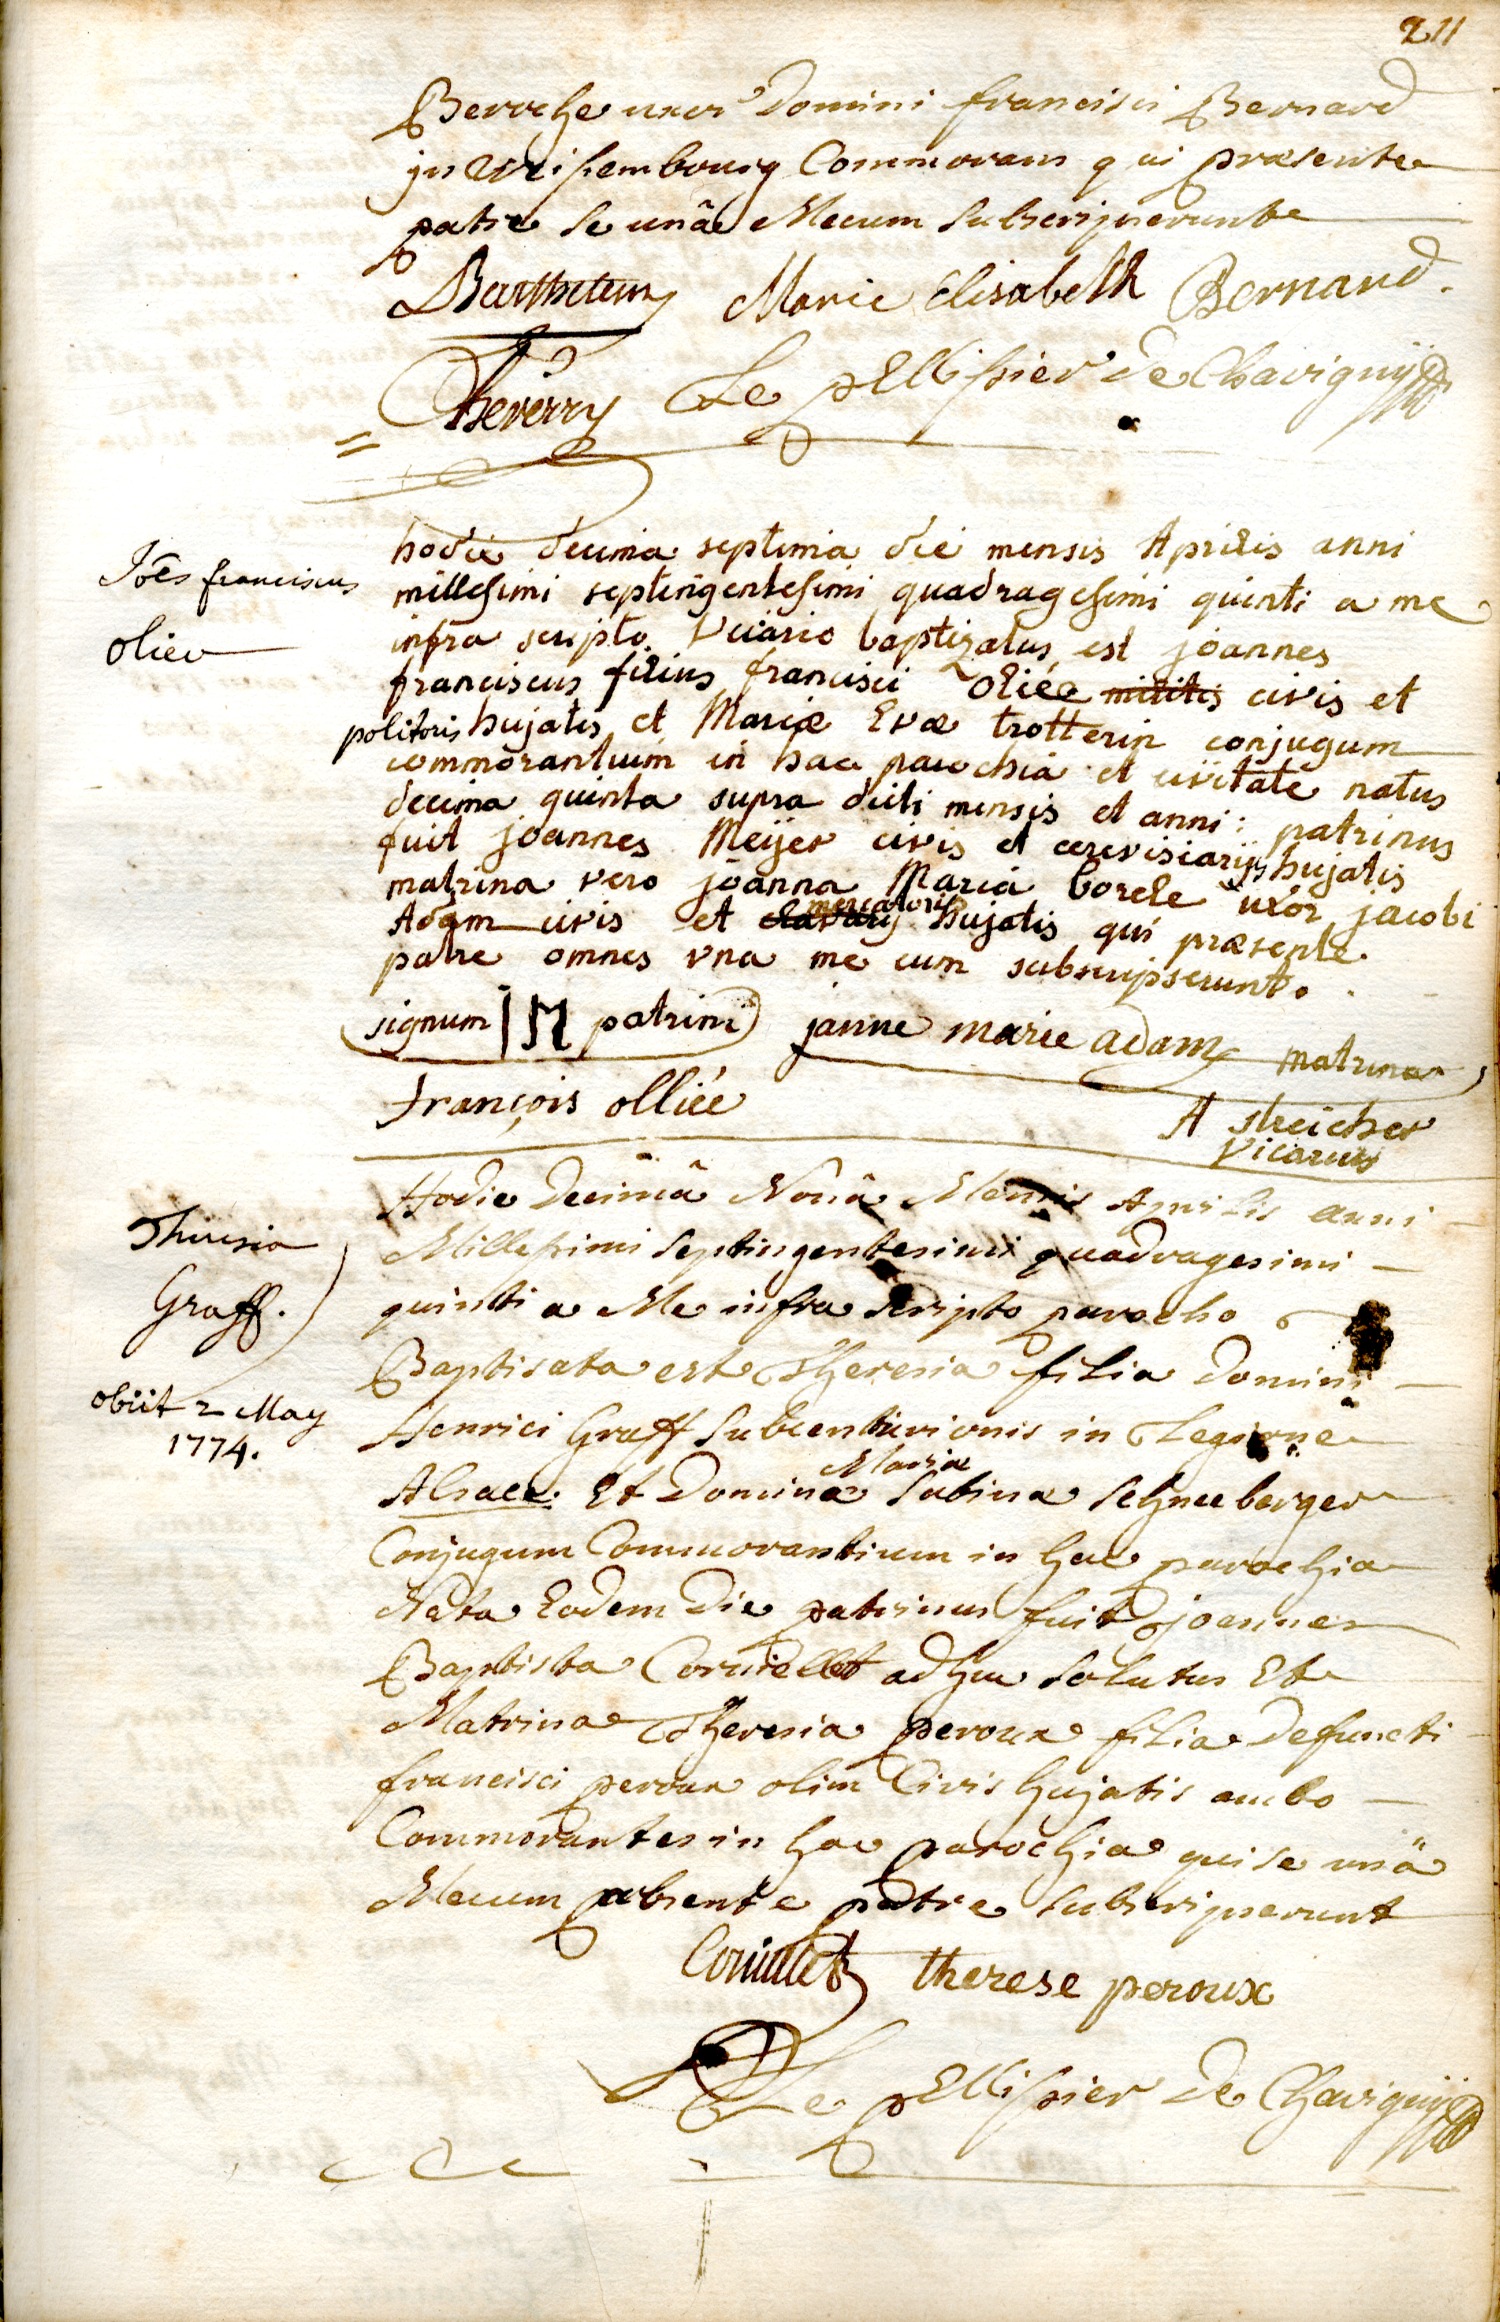 211
Beroche uxor Domini francisci Bernard
in Weissembourg Commorans qui præsente
patre se unâ Mecum Subscripserunt
Marie Elisabeth Bernard.
Le pEllissier de Chavignÿ
Joēs franciscus
oliee
hodie decima septima die mensis Aprilis anni
millesimi septingentesimi quadragesimi quinti a me
infra scripto Vicario baptizatus est joannes
franciscus filius francisci oliée militis civis et
politoris hujatis et Mariæ Evæ trotterin conjugum
commorantium in hac parochia et civitate natus
decima quinta supra dicti mensis et anni: patrinus
fuit joannes Meijer civis et cerevisiarijs hujatis
matrina vero joanna Maria borele uxor jacobi
Adam civis et mercatoris hujatis qui præsente
patre omnes vna me cum subscripserunt.
signum M patrini janne marie adam matrina
françois olliée
A streicher
vicarius
Theresia
Graff.
obiit 2 May
1774.
Hodie Decimâ Nonâ Mensis Aprilis anni
Millessimi septingentesimi quadragesimi
quinti a Me infra scripto parocho
Baptisata est Theresia filia Domini
Henrici Graff Subcenturionis in Legione
Alsace. Et Domina Mariæ Sabina Schneeberger
Conjugum Commorantium in hac parochia
Nata Eodem Die patrinus fuit joannes
Baptista Corniellet adhuc solutus Et
Matrina Theresia peroux filia Defuncti
francisci peroux olim Civis hujatis ambo
Commorantes in hac parochia qui se unâ
Mecum absente patre subscripserunt
therese peroux
Le pEllissier de Chavignÿ